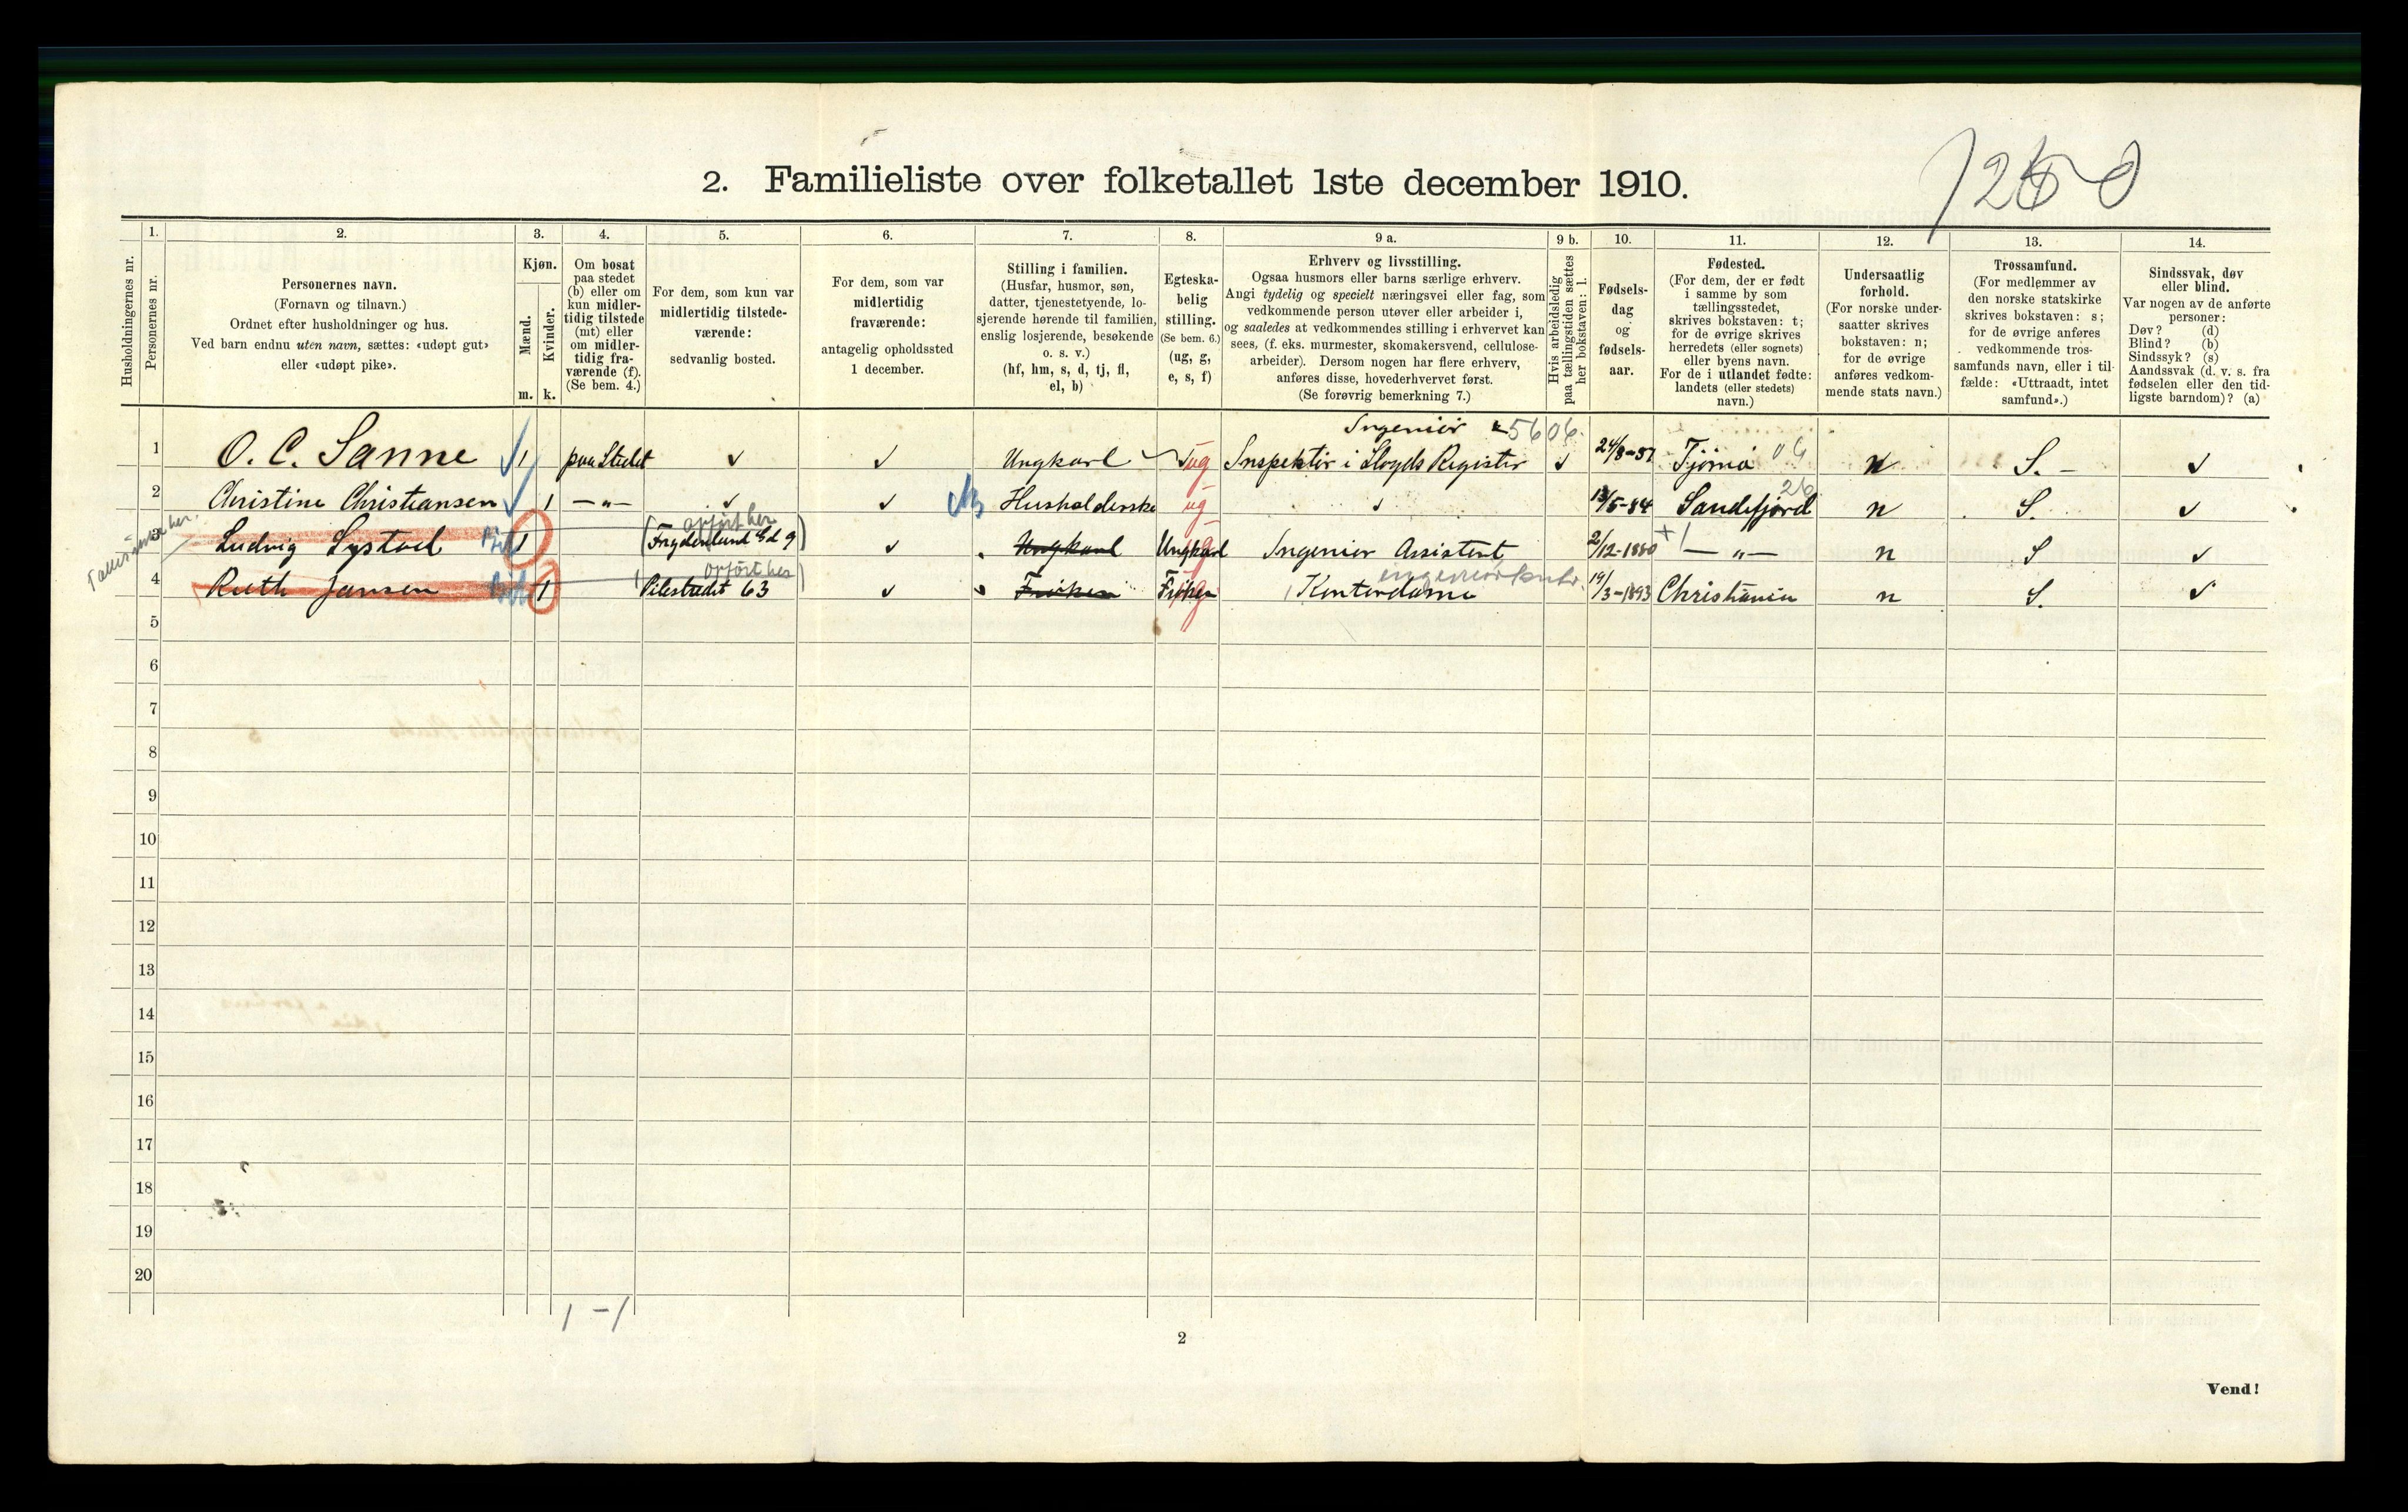 2. Familieliste over folketallet 1ste december 1910.
1. 2. 3. 4. 5. 6. 7. 8. 9 a. 9 b. 10. 11. 12. 13. 14.
Husholdningernes nr.
Personernes nr.
Personernes navn.
(Fornavn og tilnavn.)
Ordnet efter husholdninger og hus.
Ved barn endnu uten navn, sættes: «udøpt gut»
eller «udøpt pike».
Kjøn.
Mænd.
Kvinder.
m. k.
Om bosat
paa stedet
(b) eller om
kun midler-
tidig tilstede
(mt) eller
om midler-
tidig fra-
værende (f).
(Se bem. 4.)
For dem, som kun var
midlertidig tilstede-
værende:
sedvanlig bosted.
For dem, som var
midlertidig
fraværende:
antagelig opholdssted
1 december.
Stilling i familien.
(Husfar, husmor, søn,
datter, tjenestetyende, lo-
sjerende hørende til familien,
enslig losjerende, besøkende
o. s. v.)
(hf, hm, s, d, tj, fl,
el, b)
Egteska-
belig
stilling.
(Se bem. 6.)
(ug, g,
e, s, f)
Erhverv og livsstilling.
Ogsaa husmors eller barns særlige erhverv.
Angi tydelig og specielt næringsvei eller fag, som
vedkommende person utøver eller arbeider i,
og saaledes at vedkommendes stilling i erhvervet kan
sees, (f. eks. murmester, skomakersvend, cellulose-
arbeider). Dersom nogen har flere erhverv,
anføres disse, hovederhvervet først.
(Se forøvrig bemerkning 7.)
Hvis arbeidsledig
paa tællingstiden sættes
her bokstaven: l.
Fødsels-
dag
og
fødsels-
aar.
Fødested.
(For dem, der er født
i samme by som
tællingsstedet,
skrives bokstaven: t;
for de øvrige skrives
herredets (eller sognets)
eller byens navn.
For de i utlandet fødte:
landets (eller stedets)
navn.)
Undersaatlig
forhold.
(For norske under-
saatter skrives
bokstaven: n;
for de øvrige
anføres vedkom-
mende stats navn.)
Trossamfund.
(For medlemmer av
den norske statskirke
skrives bokstaven: s;
for de øvrige anføres
vedkommende tros-
samfunds navn, eller i til-
fælde: «Uttraadt, intet
samfund».)
Sindssvak, døv
eller blind.
Var nogen av de anførte
personer:
Døv? (d)
Blind? (b)
Sindssyk? (s)
Aandssvak (d. v. s. fra
fødselen eller den tid-
ligste barndom)? (a)
Ingeniør 5606
1 O. C. Sanne 1 paa Stedet Ungkarl ug Inspektør i Lloyds Register 24/8-57 Tjømø 06 n S.-
2 Christine Christiansen 1 —"— Husholderske ug 13/5-84 Sandefjord 26 n S.
opført her
3 Ludvig Lystad 1 (Frydenlund Gd 9) Ungkarl Ungkarl Ingeniør Assistent 2/12-1880 —"— n S
opført her ingeniørkontr.
4 Ruth Jansen 1 Pilestredet 63 Frøken Frøken Kontordame 19/3-1893 Christiania n S.
5
6
7
8
9
10
11
12
13
14
15
16
17
18
19
20
1 - 1
2
Vend!